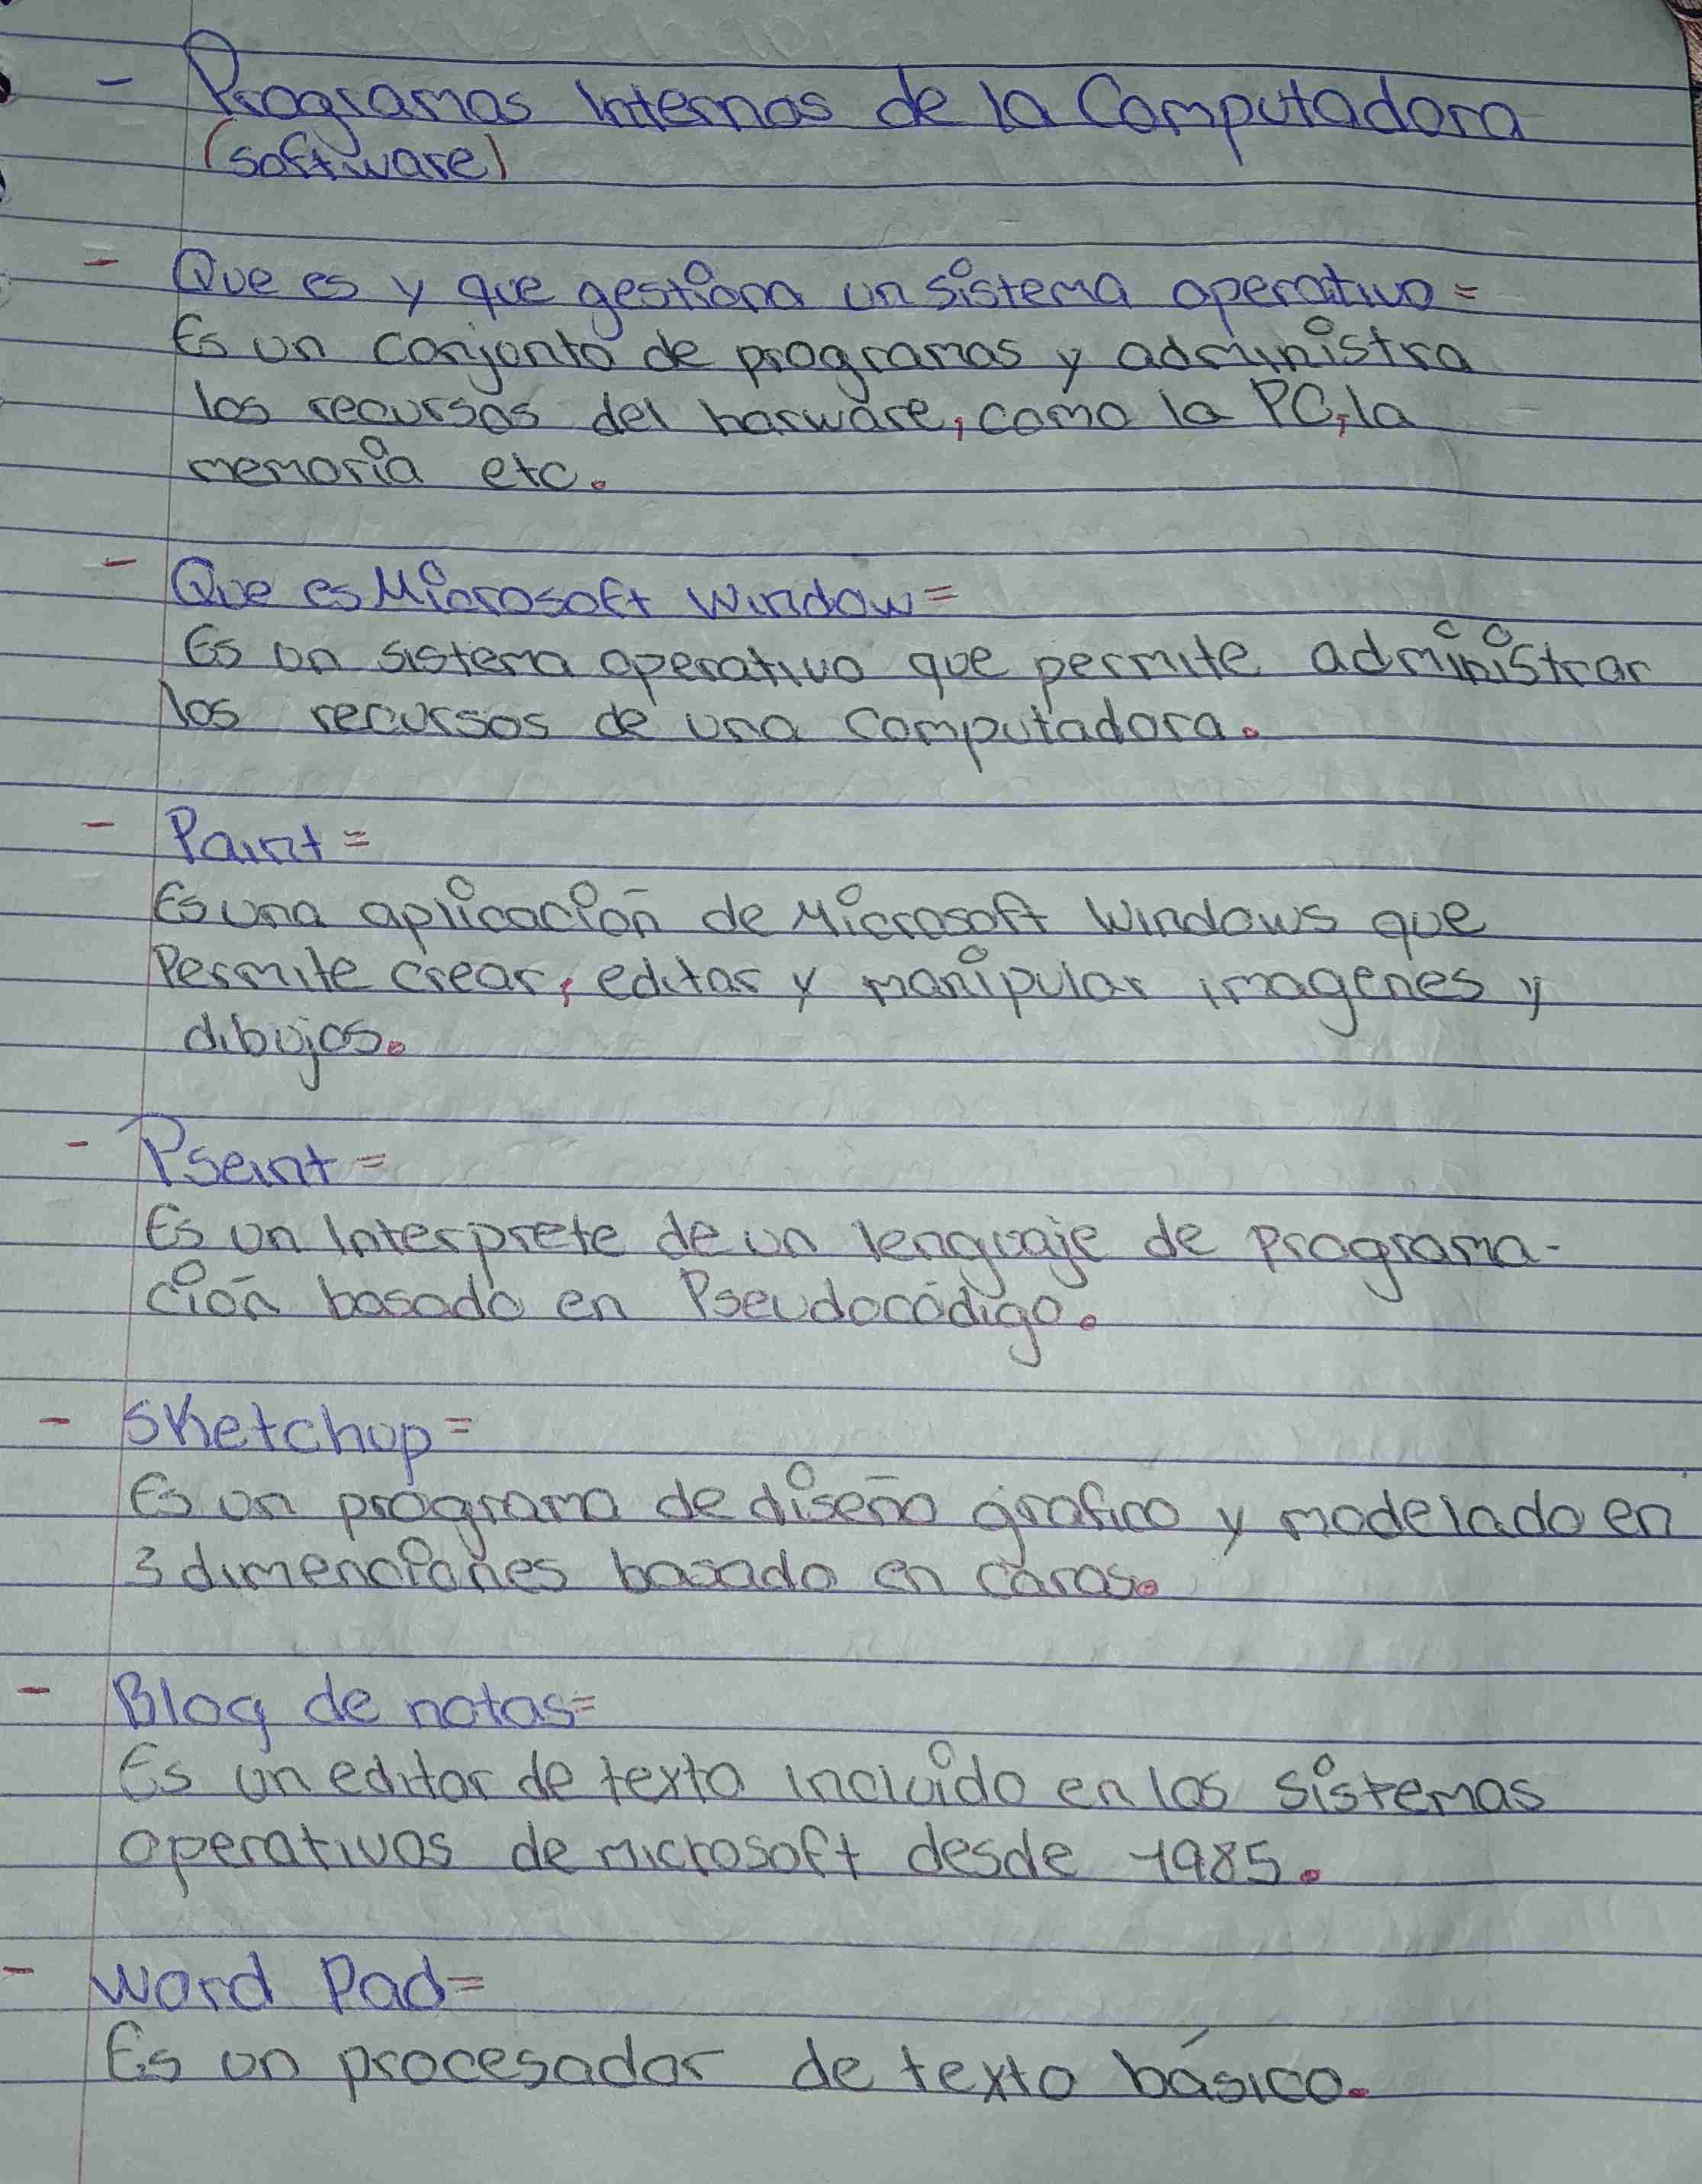 - Programas Internos de la Computadora
(software)
- Que es y que gestiona un sistema operativo =
Es un conjonto de programas y administra
los recursos del harware, como la PC, la
memoria etc.
- Que es Microsoft Window =
Es un sistema operativo que permite administrar
los recursos de una computadora.
- Paint =
Es una aplicación de Microsoft Windows que
Permite crear, editar y manipular imagenes y
dibujos.
- Pseint =
Es un Interprete de un lenguaje de programa-
ción basado en Pseudocódigo.
- Sketchup =
Es un programa de diseño grafico y modelado en
3 dimenciones basado en caras.
- Blog de notas =
Es un editor de texto incluido en los sistemas
operativos de microsoft desde 1985.
- Word Pad =
Es un procesador de texto básico.